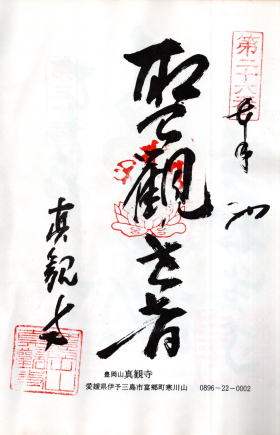 第二十六番
奉拝
聖観世音
真観寺
豊岡山 真観寺
愛媛県伊予三島市富郷町寒川山 0896-22-0002